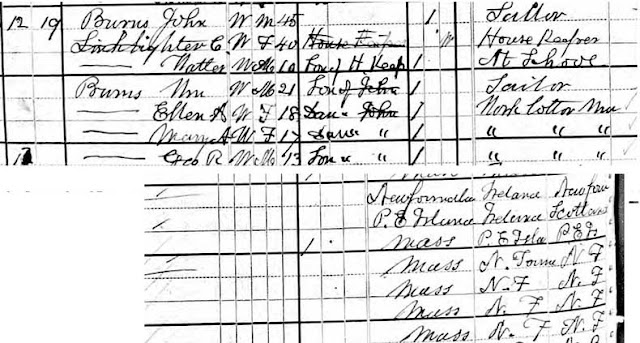 12 19 Burns John W M 45 1 Sailor
E W F 40 House Keeper W House Keeper
Walter W M 10 Son of H Keep 1 At Shool
Burns Wm W M 21 Son of John 1 Sailor
Ellen A W F 18 Dau John 1 Work Cotton
Mary A W F 17 Dau " 1 " "
Geo R W M 13 Son " 1 " "
Ireland
P. E Island Ireland Scotland
1 Mass P. E Isla P. E I
Mass N. N. F
Mass N. F N. F.
Mass N. F N. F
Mass N. F N. F